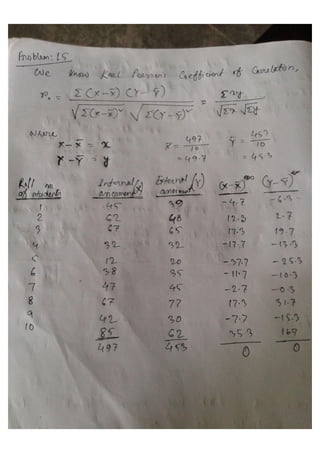 Problem: 15
We know Karl Pearson's Coefficient of Correlation,
r. = Σ(x-x̄)(Y-ȳ) / √Σ(x-x̄)² √Σ(Y-ȳ)² = Σxy / √Σx √Σy
where
x-x̄ = x x̄ = 497/10 ȳ = 453/10
Y-ȳ = y = 49.7 = 45.3
Roll no of students Internal assessment (X) External assessment (Y) (x-x̄) (Y-ȳ)
1 45 39 -4.7 -6.3
2 62 48 12.3 2.7
3 67 65 17.3 19.7
4 32 32 -17.7 -13.3
5 12 20 -37.7 -25.3
6 38 35 -11.7 -10.3
7 47 45 -2.7 -0.3
8 67 77 17.3 31.7
9 42 30 -7.7 -15.3
10 85 62 35.3 167
497 453 0 0